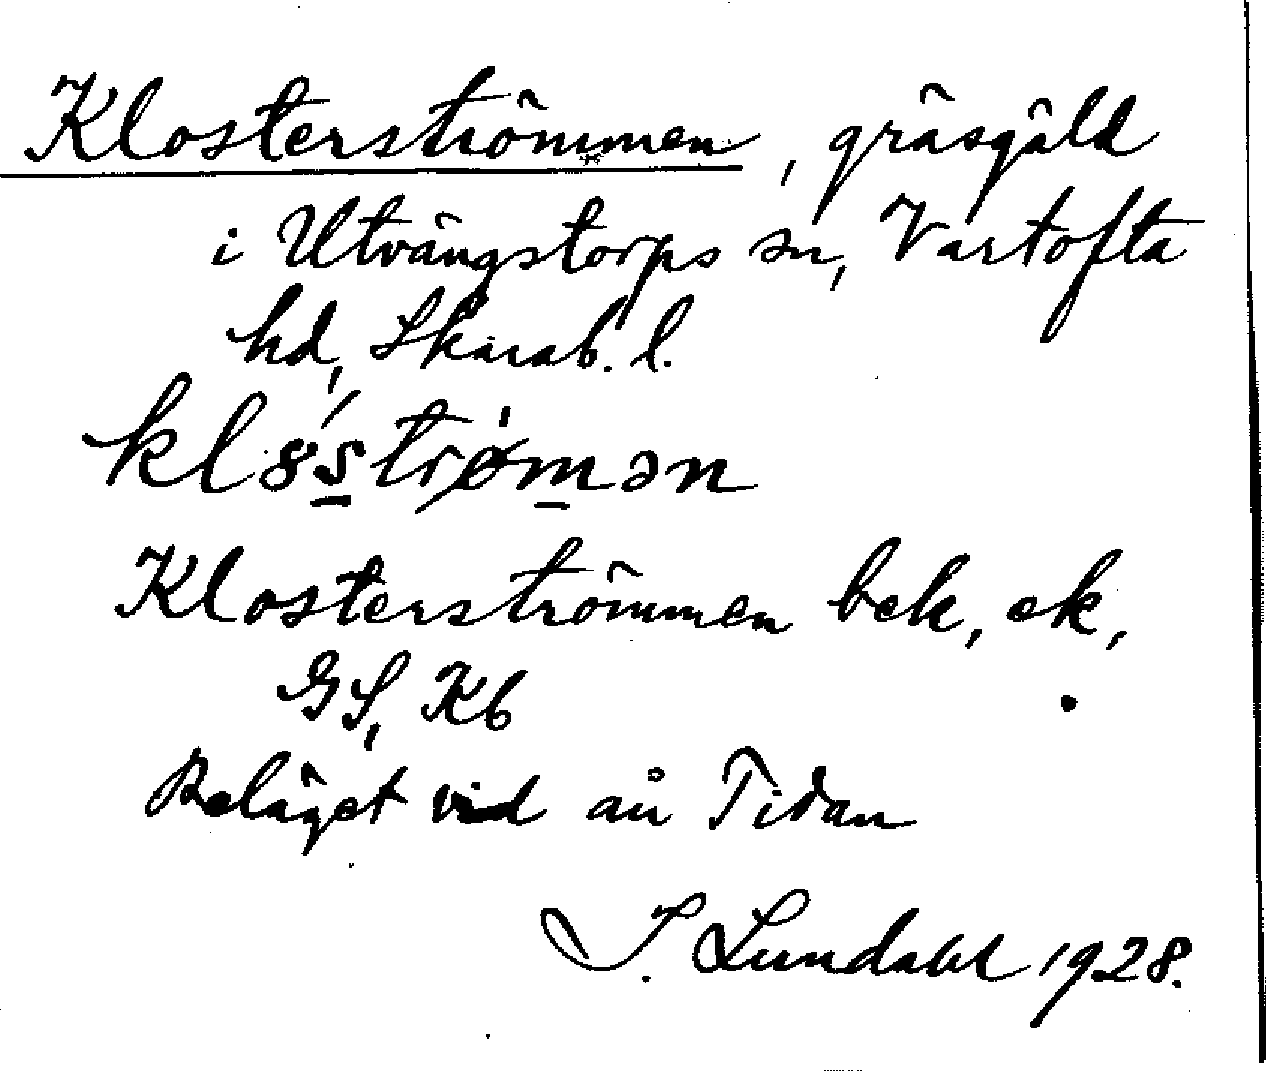 Klosterströmmen, gräsgäld
i Utvängstorps sn, Vartofta
hd, Skarab. l.
Klosterströmmen bek, ek,
GS, Kb
Beläget vid ån Tidan
I. Lundahl 1928.